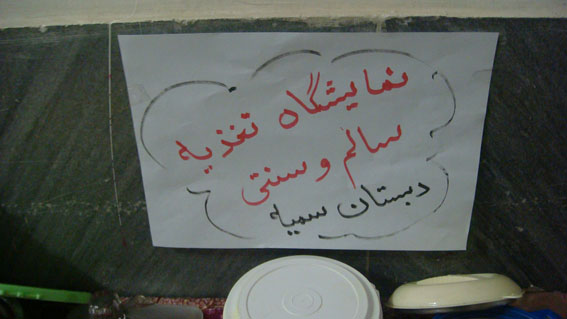 نمایشگاه تغذیه
سالم و سنتی
دبستان سمیه